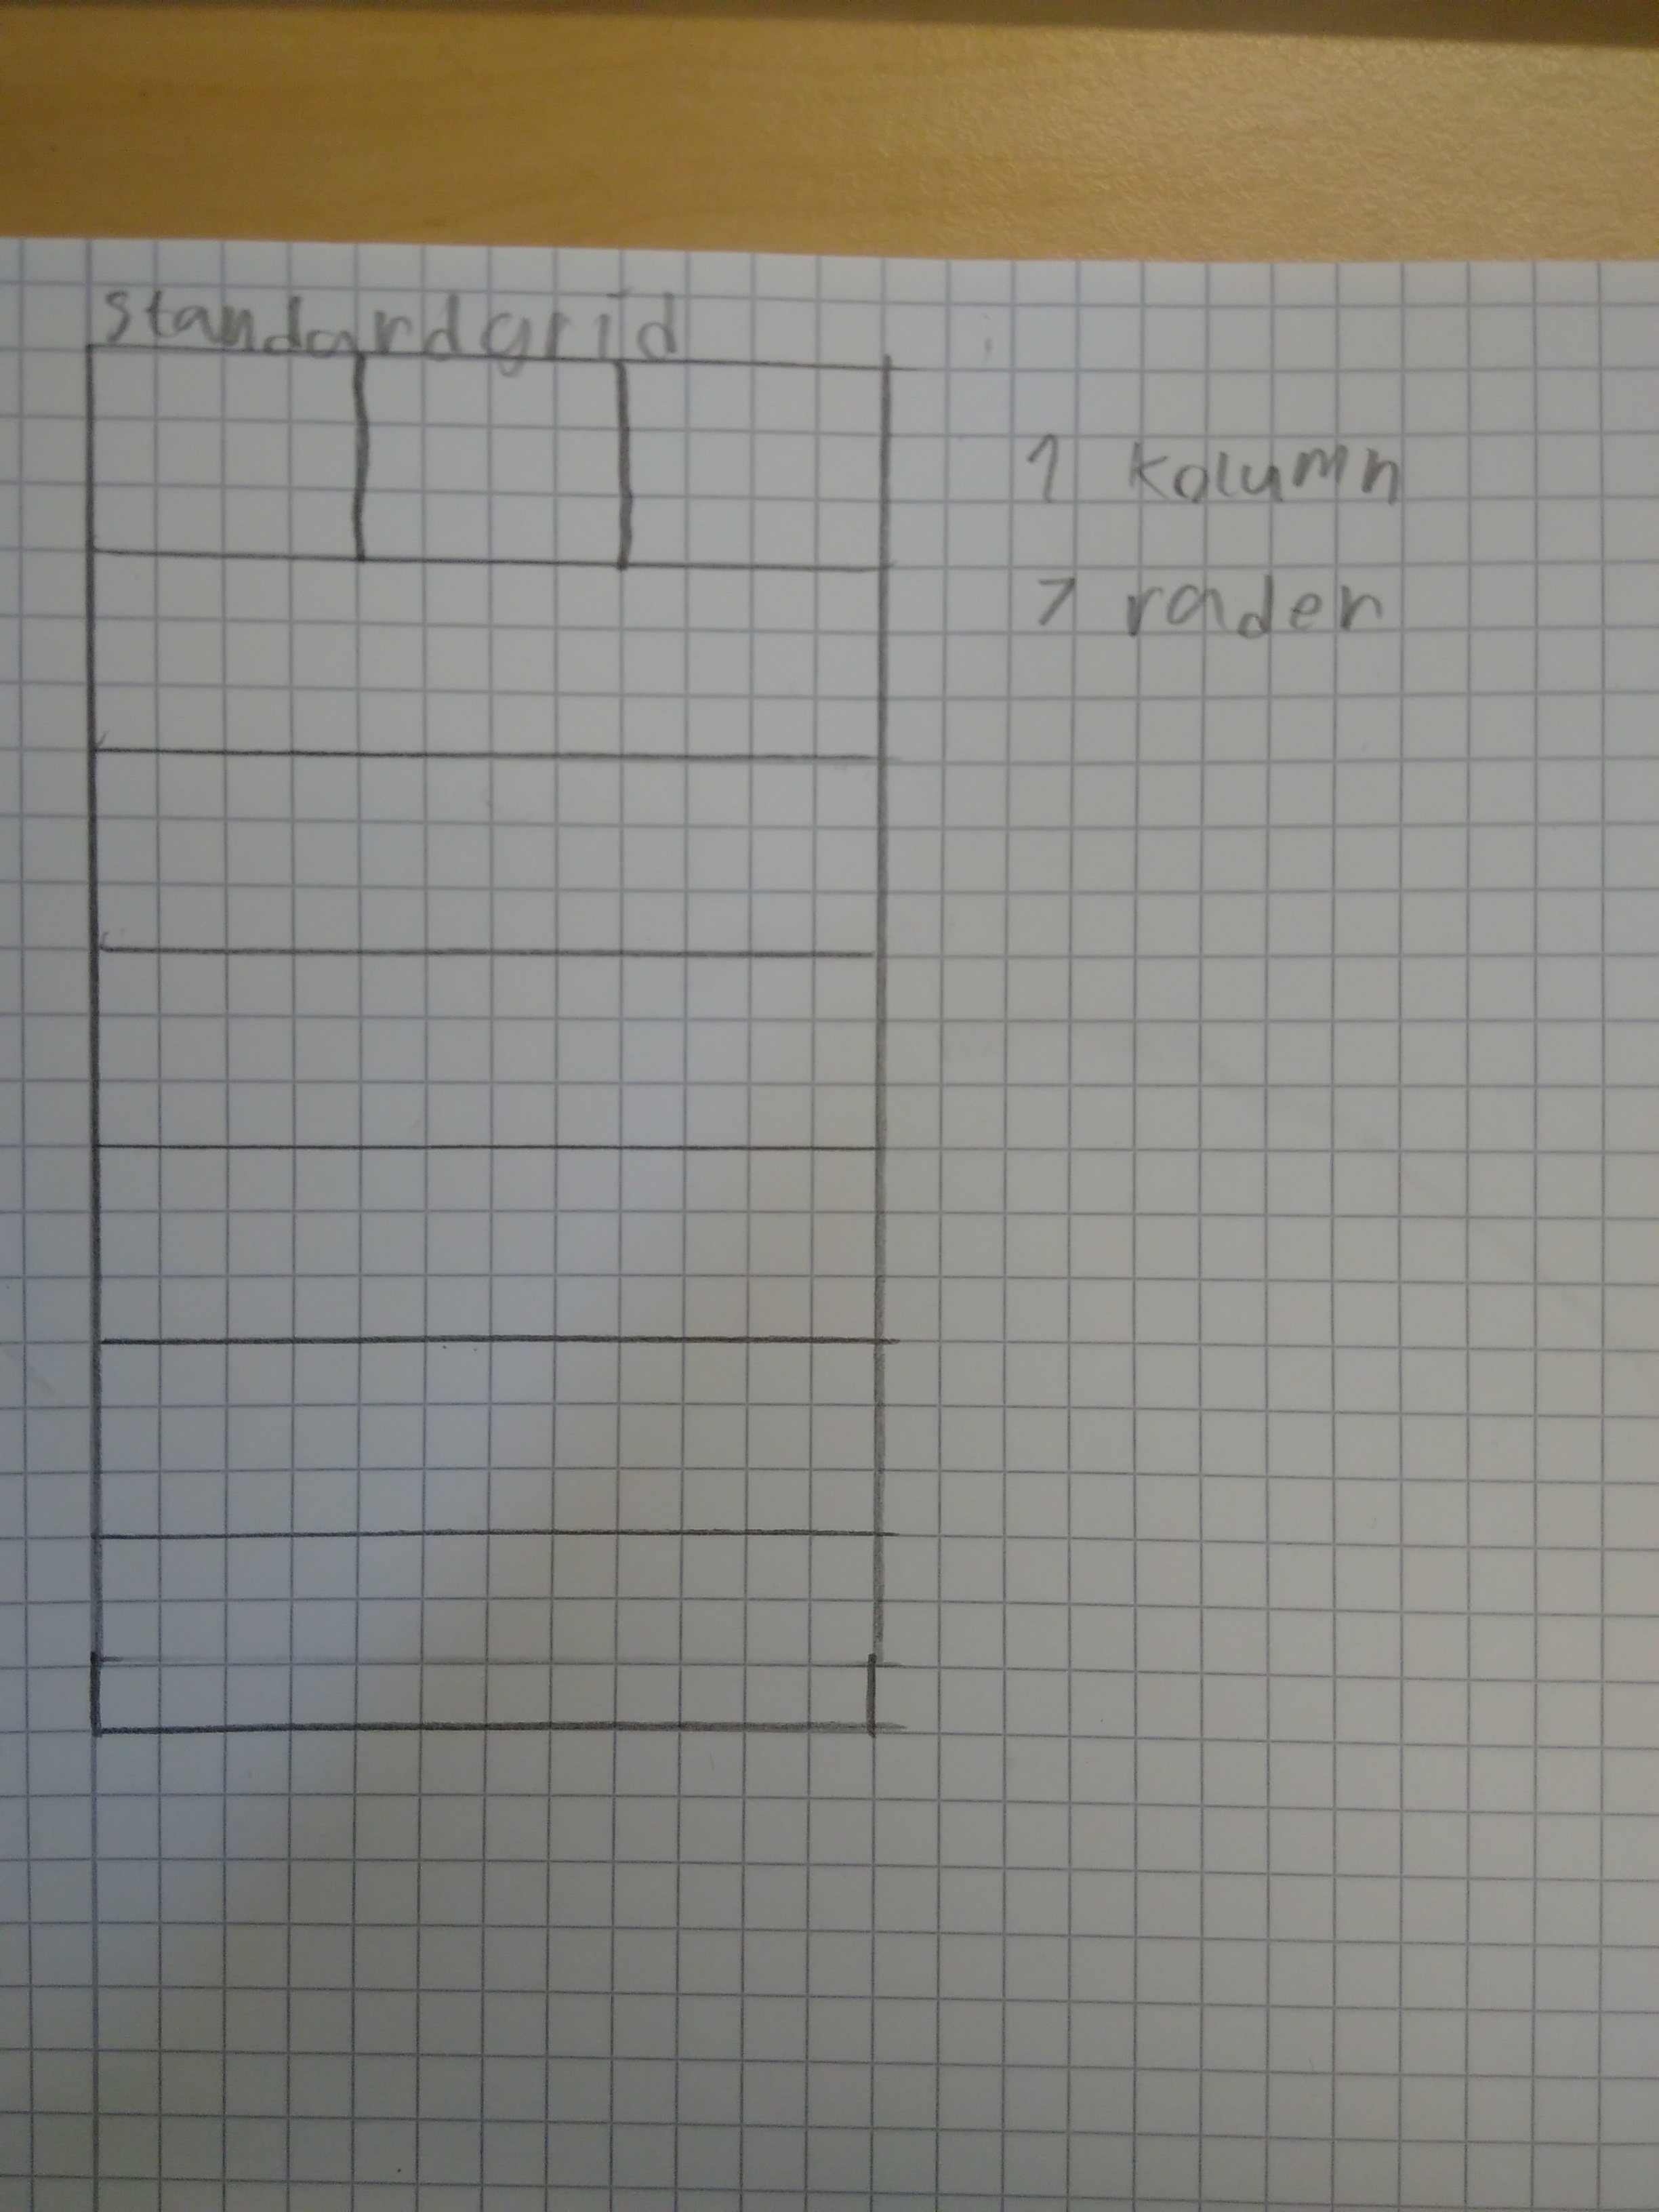 standardgrid
1 kolumn
7 rader